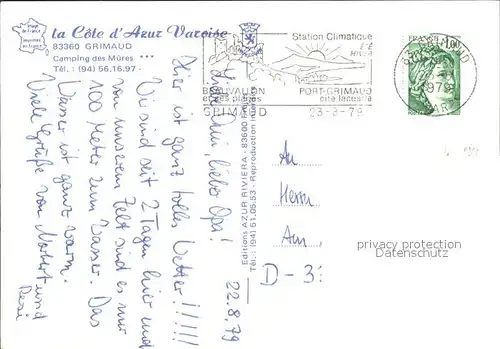 la Côte d'Azur Varoise
83360 GRIMAUD
Camping des Mûres ***
Tél. : (94) 56.16.97
Station Climatique
ÉTÉ
HIVER
BEAUVALLON
et ses plages
PORT-GRIMAUD
cité lacustre
GRIMAUD 23-8-79
FRANCE 1,00
Editions AZUR RIVIERA - 83600
Tél. : (94) 51.05.53 - Reproduction
22.8.79
Liebe Omi, lieber Opa!
Hier ist ganz tolles Wetter!!!!!
Wir sind seit 2 Tagen hier und
von unserem Zelt sind es nur
100 Meter zum Wasser. Das
Wasser ist ganz warm.
Viele Grüße von Norbert und
Resi
An
Herrn
Am
D-3
privacy protection
Datenschutz